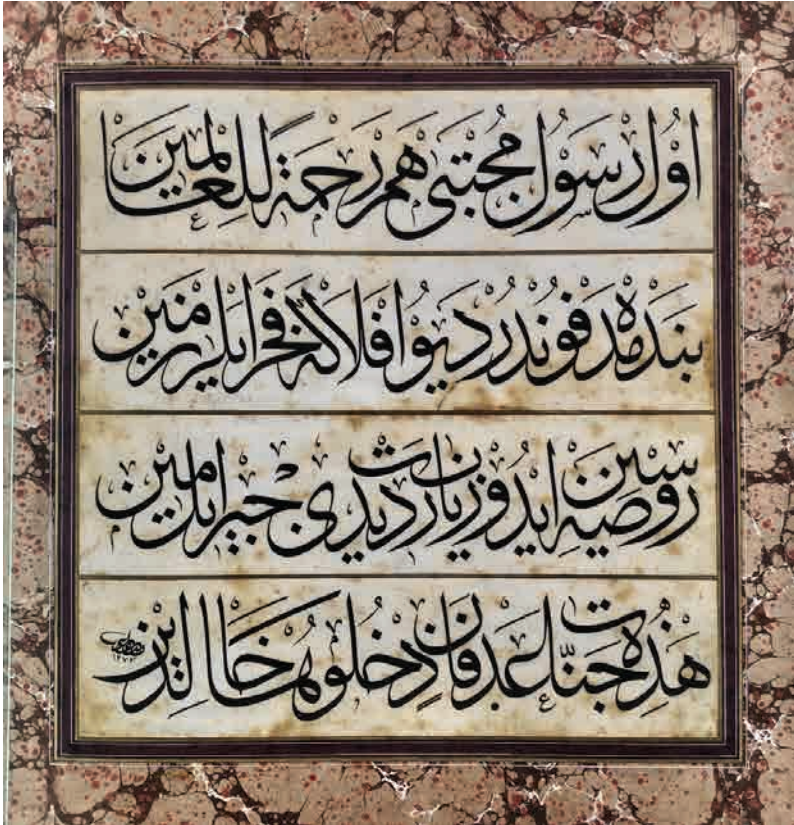 اوُل رَسوُل مُجتَبَى هَم رَحمَةً لِلعَالمَين
بَندَه مَدفوُندُر ديوُ افلاكَه فَخر ايلر زمَين
روضه سين ايدوُب زيارت ديدى جبريل امَين
هَذِه جَنّات عَدن فَادخُلوُهَا خَالِدين